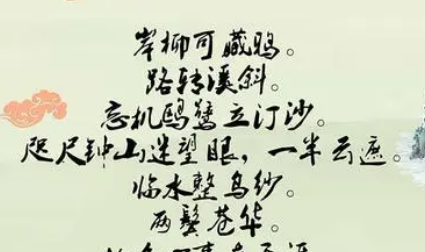 岸柳可藏鸦。
路转溪斜。
忘机鸥鹭立汀沙。
咫尺钟山迷望眼，一半云遮。
临水整乌纱。
两鬓苍华。